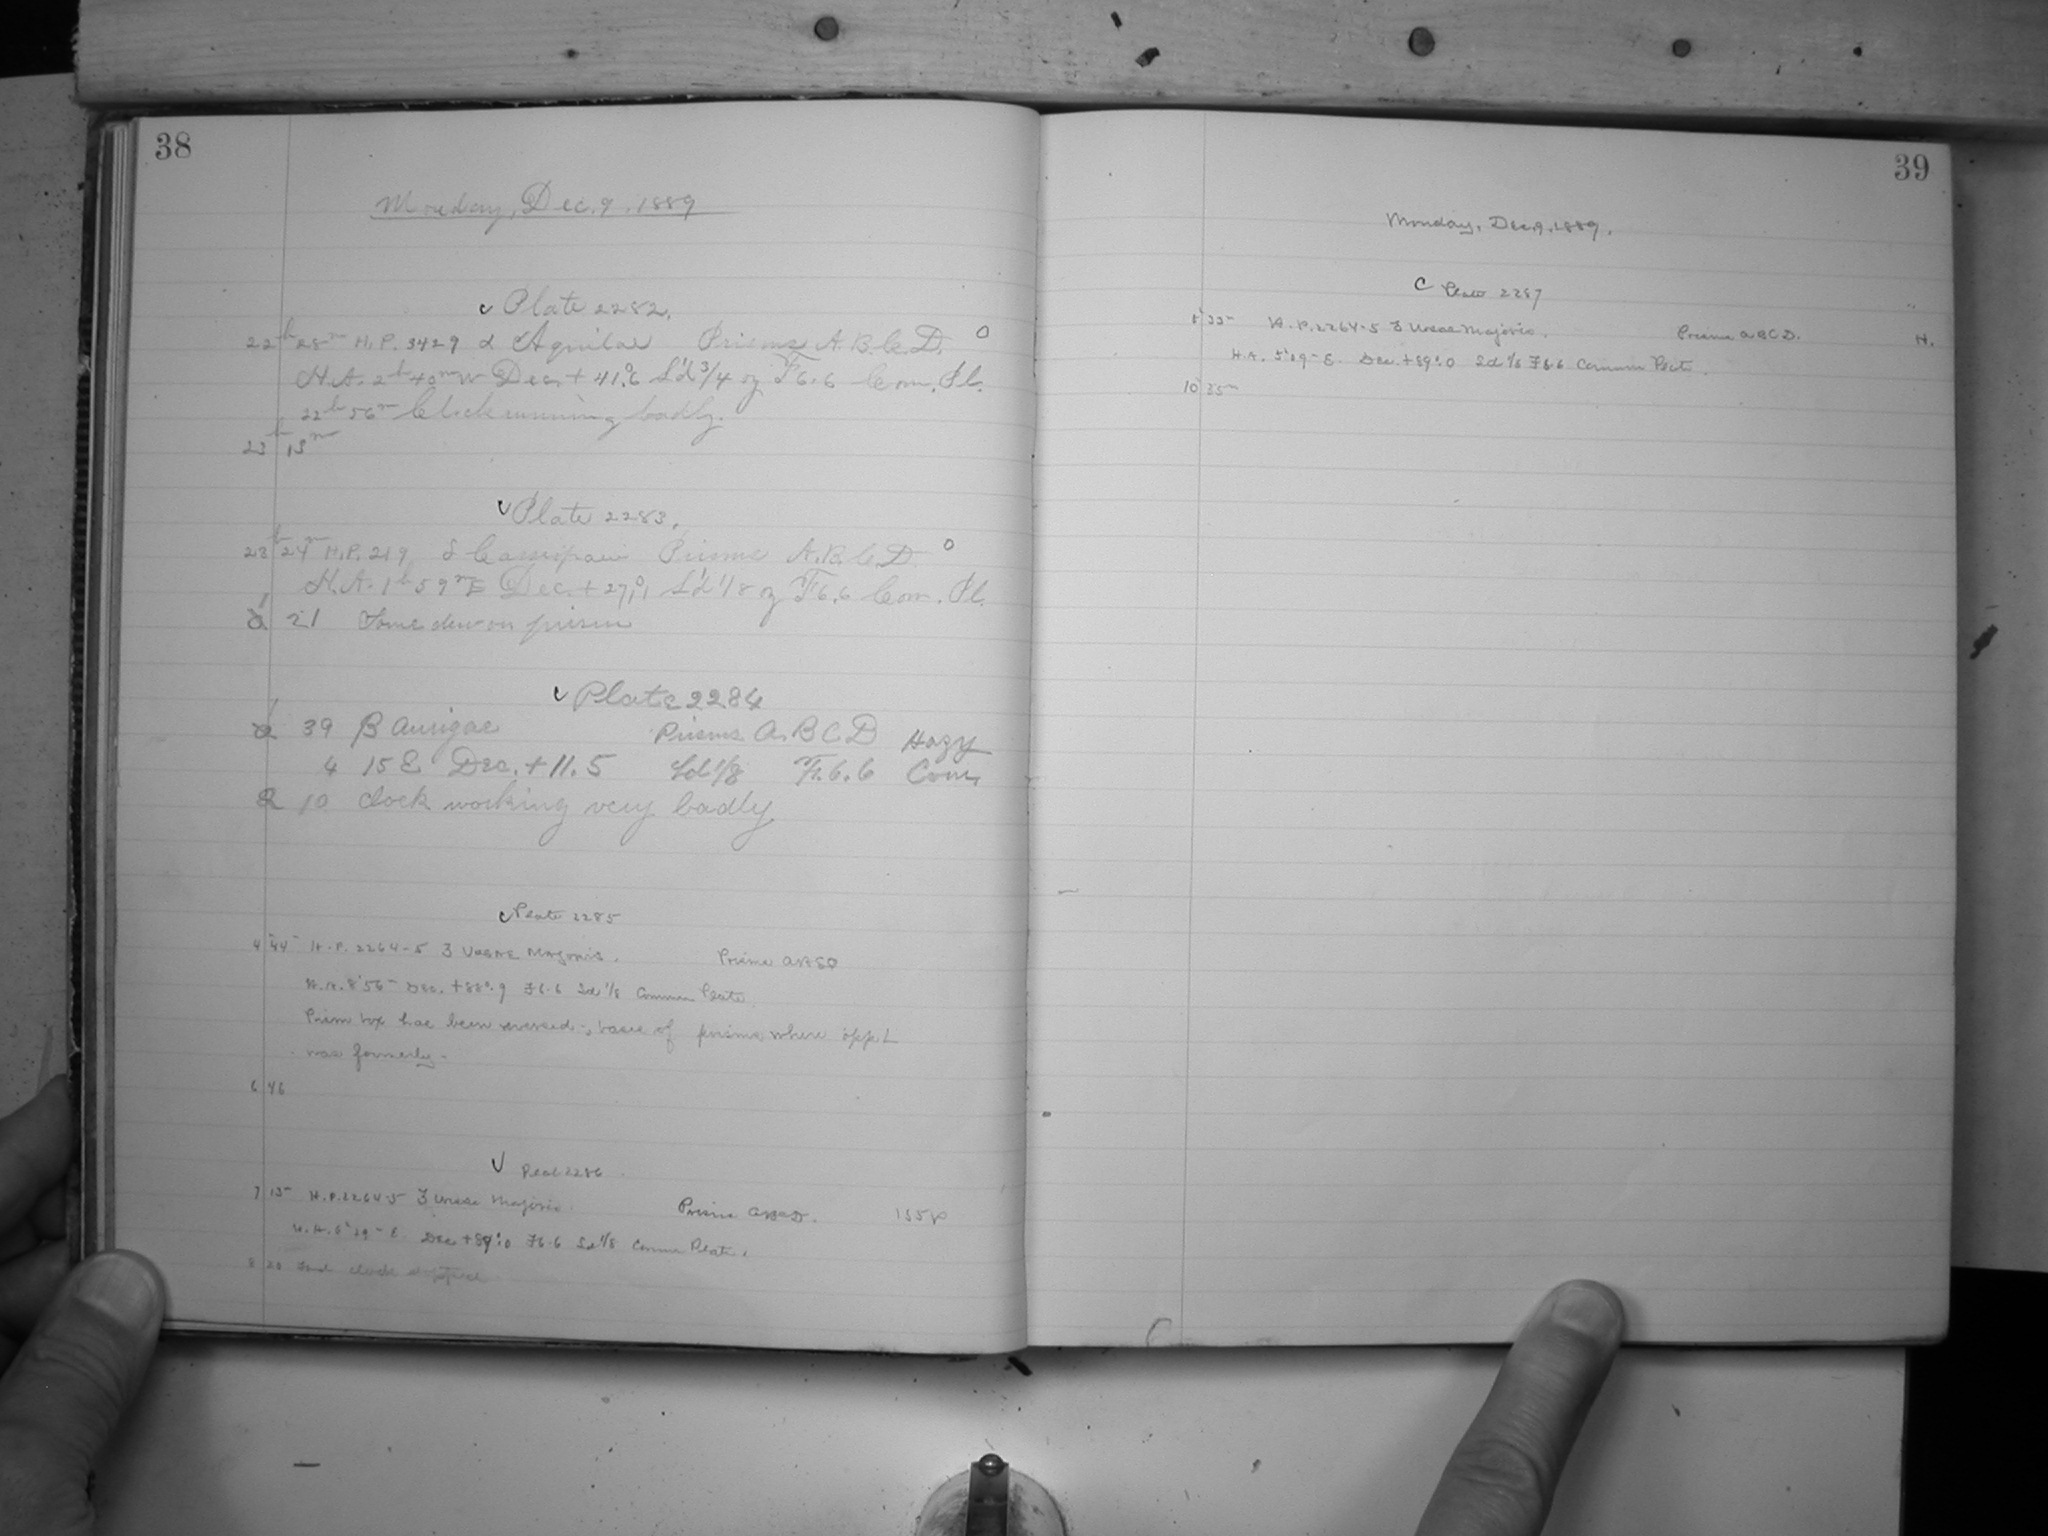 38
Monday, Dec. 9. 1889
Plate 2282.
22h 28m H.P. 3429 α Aquilae Prisms A.B.C.D. 0
H.A. 2h 40m W Dec. + 41.°6 S'd 3/4 of F6.6 Com. Pl.
22h 56m Clock running badly.
23h 18m
Plate 2283.
23h 24m H.P. 219 δ Cassiopaiæ Prisms A.B.C.D. 0
H.A. 1h 59m E Dec. + 27.°1 S'd 1/8 of F6.6 Com. Pl.
1 21 Some dew on prism
Plate 2284
1 39 β Aurigae Prisms A.B C D Hazy
4 15 E Dec. + 11.5 Sd 1/8 F. 6.6 Com.
2 10 clock working very badly
Plate 2285
4 44 H.P. 2264-5 ζ Ursae Majoris. Prisms ABCD
H.A. 8 56 Dec. +88°.9 F6.6 Sd 1/8 Common Plate
Prism box has been reversed, bases of prisms where opp't
was formerly.
6 46
2286
7 15 H.P. 2264-5 ζ Ursae Majoris. Prisms ABCD.
H.A. 6 29 E. Dec +89°.0 F6.6 Sd 1/8 Common Plate.
8 20 clock stopped
39
Monday, Dec. 9. 1889.
Plate 2287
8 33m H.P. 2264-5 ζ Ursae Majoris. Prisms ABCD. H.
H.A. 5 09m E. Dec. +89°.0 Sd 1/8 F6.6 Common Plate.
10 35m